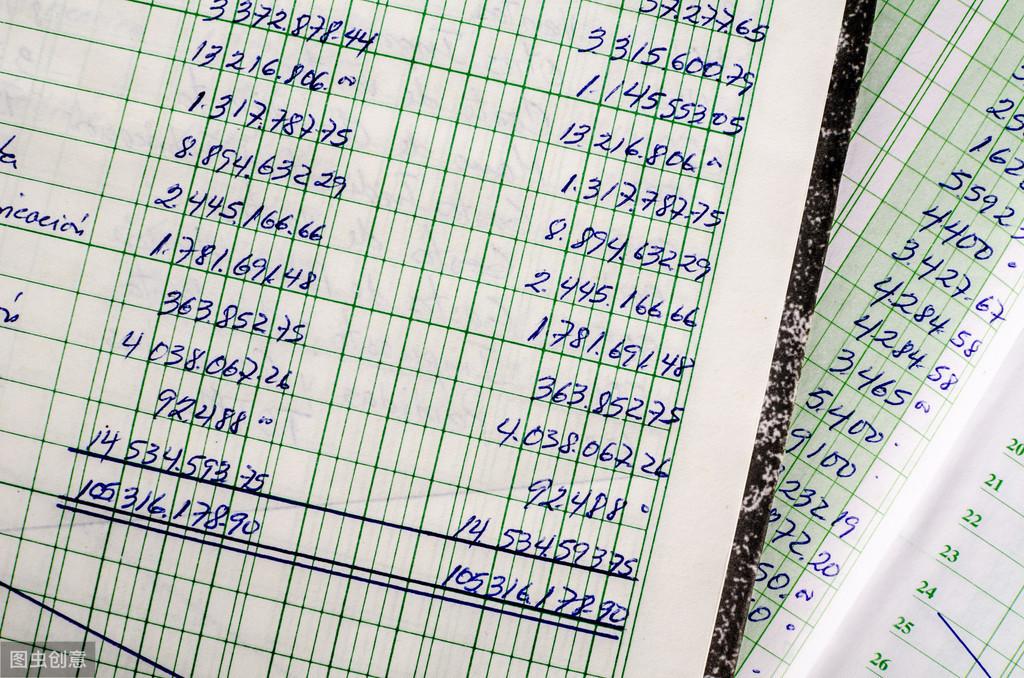 3 372.878.44
13 216.806.00
1.317.787.75
8.894.632 29
2.445.166.66
1.781.691.48
363.852.75
4 038.067.26
92488 00
14 534.593.75
105316.178.90
icación
37.277.65
3 315 600.79
1.145553.05
13.216.806.00
1.317.787.75
8.894.632.29
2.445.166 66
1781.691.48
363.852.75
4.038.067.26
92488 0
14 534.593 75
105316.178.90
4400.
3.427.67
4.284.58
4284.58
3.465 00
5.400.
9100.
232 19
20
21
22
23
24
25
26
图虫创意